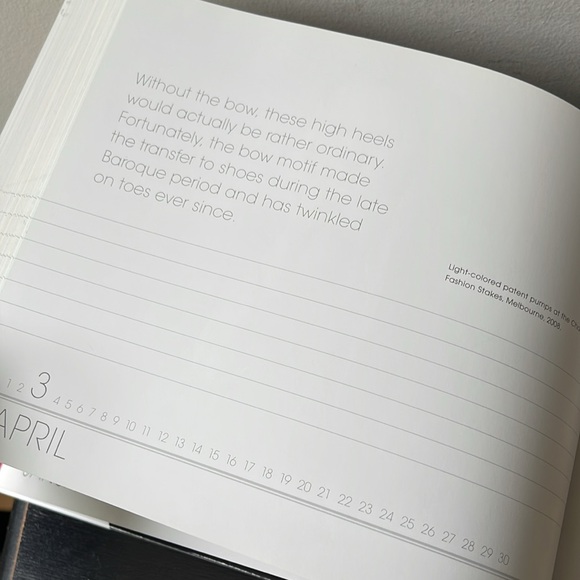 Without the bow, these high heels
would actually be rather ordinary.
Fortunately, the bow motif made
the transfer to shoes during the late
Baroque period and has twinkled
on toes ever since.
Light-colored patent pumps at the
Fashion Stakes, Melbourne, 2008.
1 2 3 4 5 6 7 8 9 10 11 12 13 14 15 16 17 18 19 20 21 22 23 24 25 26 27 28 29 30
APRIL